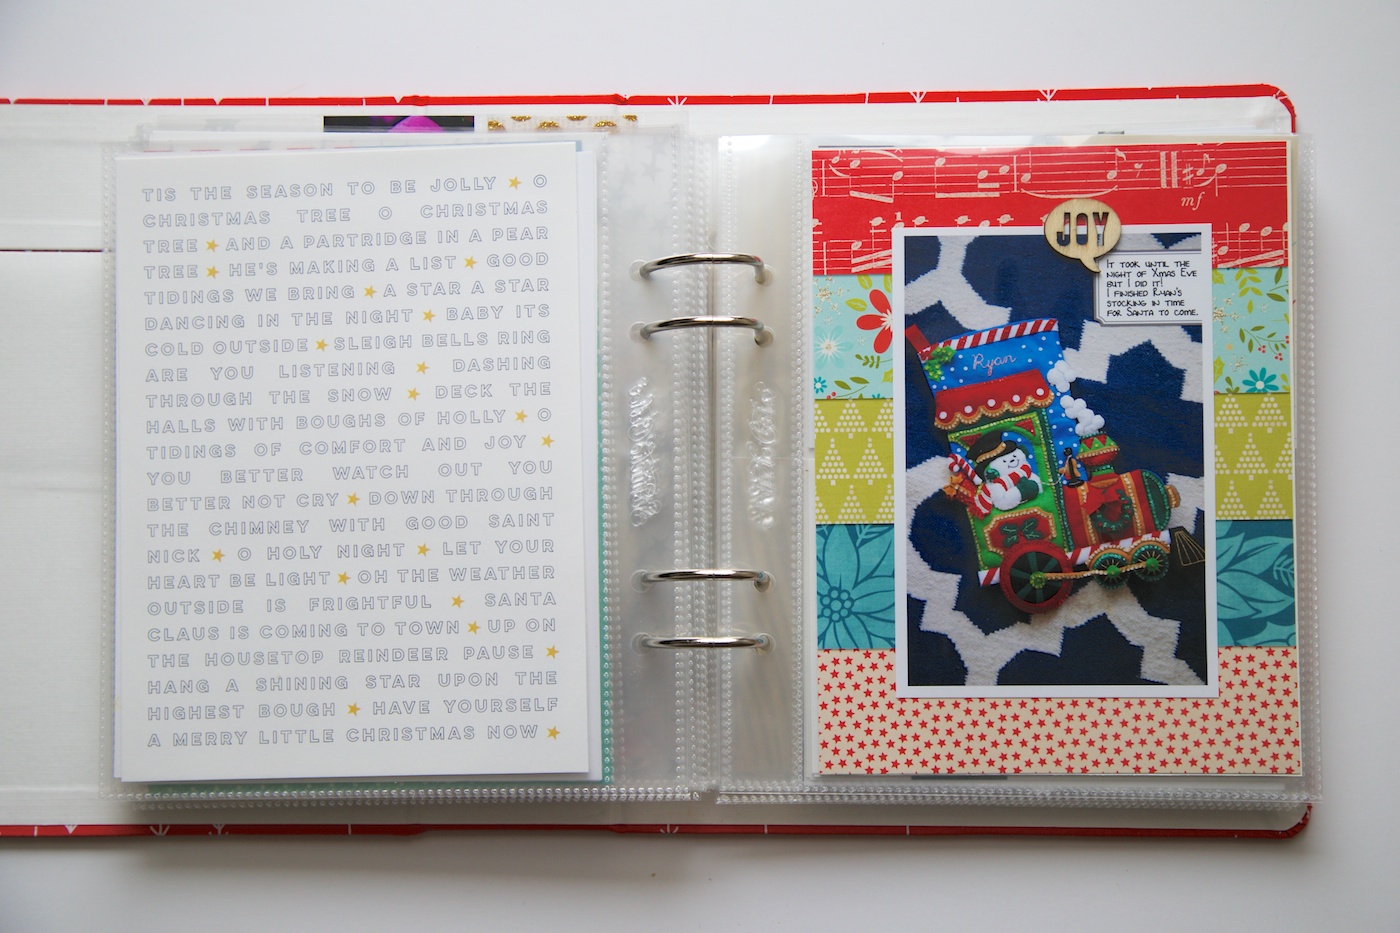 TIS THE SEASON TO BE JOLLY ★ O
CHRISTMAS TREE O CHRISTMAS
TREE ★ AND A PARTRIDGE IN A PEAR
TREE ★ HE'S MAKING A LIST ★ GOOD
TIDINGS WE BRING ★ A STAR A STAR
DANCING IN THE NIGHT ★ BABY ITS
COLD OUTSIDE ★ SLEIGH BELLS RING
ARE YOU LISTENING ★ DASHING
THROUGH THE SNOW ★ DECK THE
HALLS WITH BOUGHS OF HOLLY ★ O
TIDINGS OF COMFORT AND JOY ★
YOU BETTER WATCH OUT YOU
BETTER NOT CRY ★ DOWN THROUGH
THE CHIMNEY WITH GOOD SAINT
NICK ★ O HOLY NIGHT ★ LET YOUR
HEART BE LIGHT ★ OH THE WEATHER
OUTSIDE IS FRIGHTFUL ★ SANTA
CLAUS IS COMING TO TOWN ★ UP ON
THE HOUSETOP REINDEER PAUSE ★
HANG A SHINING STAR UPON THE
HIGHEST BOUGH ★ HAVE YOURSELF
A MERRY LITTLE CHRISTMAS NOW ★
mf
JOY
IT TOOK UNTIL THE
NIGHT OF XMAS EVE
BUT I DID IT!
I FINISHED RYAN'S
STOCKING IN TIME
FOR SANTA TO COME.
Ryan